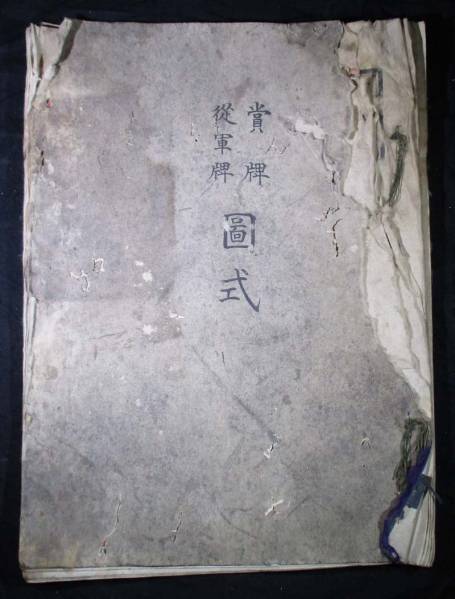 賞牌
從軍牌
圖式